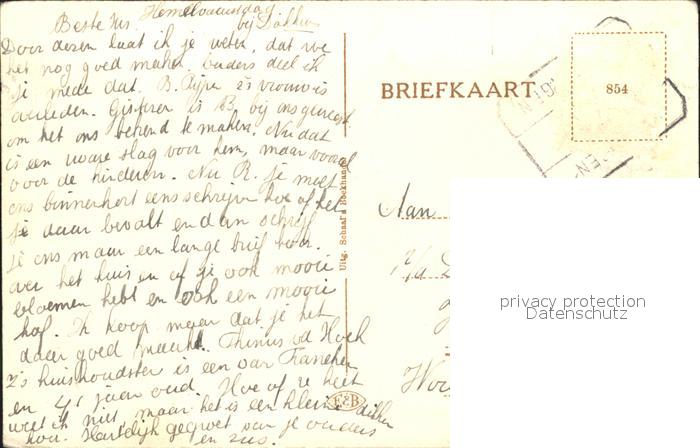 Hemelvaartsdag
Beste
Door dezen laat ik je weten, dat we
het nog goed maken. Ouders deel ik
je mede dat. B. vrouw is
overleden. Gisteren is B. bij ons geweest
om het ons bekend te maken. Nu dat
is een ware slag voor hem, maar vooral
voor de kinderen. Nu R. je moet
ons binnenkort eens schrijven hoe of het
je daar bevalt en dan schrijf
je ons maar een lange brief hoor.
over het huis en of je ook mooie
bloemen hebt en ook een mooie
hof. Ik hoop maar dat je het
daar goed maakt. Thinus vd Hoek
z's huishoudster is een van Franeker
en 41 jaar oud. Hoe of ze heet
weet ik niet, maar het is een kleine dikke
hoor. Hartelijk gegroet van je ouders
en zus.
Uitg. Schaal's Boekhandel
E&B
BRIEFKAART
854
Aan
privacy protection
Datenschutz